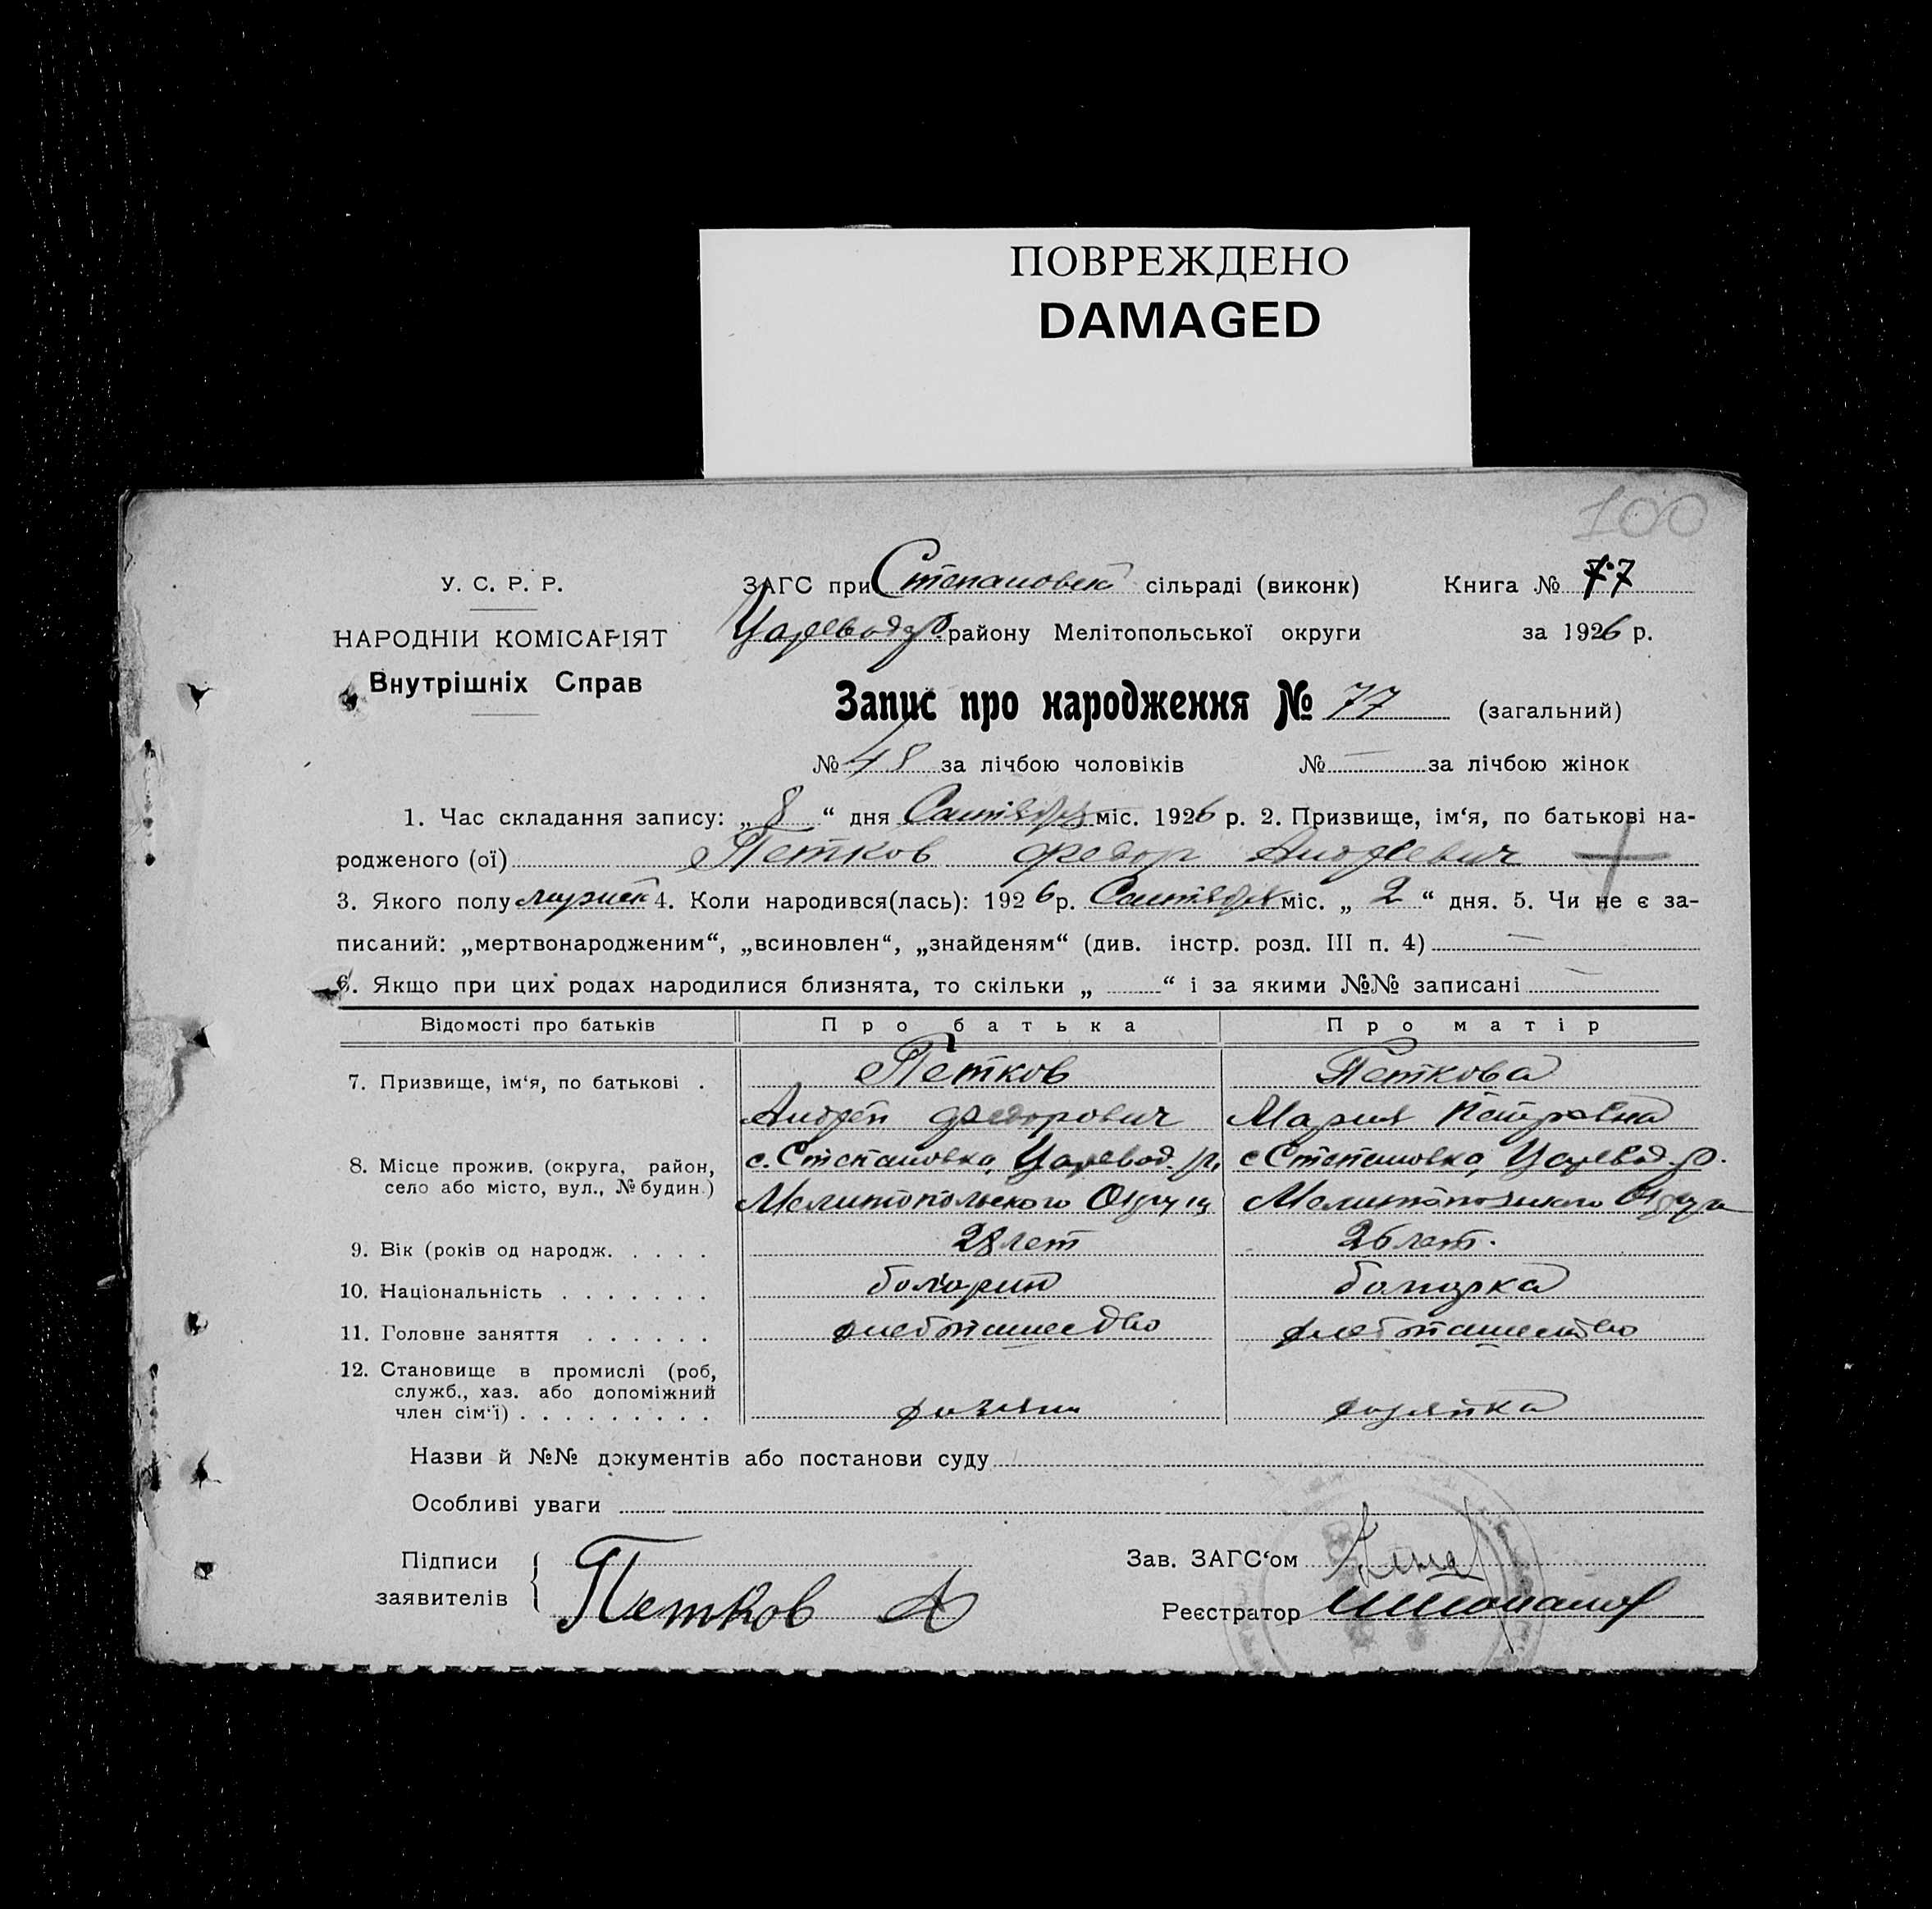 ПОВРЕЖДЕНО
DAMAGED
100
У. С. Р. Р.
НАРОДНІИ КОМІСАРІЯТ
Внутрішніх Справ
ЗАГС при Степановской сільраді (виконк) Книга № 77
Царевод р. району Мелітопольської округи за 1926 р.
Запис про народження № 77 (загальний)
№ 48 за лічбою чоловіків № — за лічбою жінок
1. Час складання запису: „ 8 “ дня Сентября міс. 1926 р. 2. Призвище, ім‘я, по батькові на-
родженого (ої) Петков Федор Андреевич
3. Якого полу мужск 4. Коли народився(лась): 1926 р. Сентября міс. „ 2 “ дня. 5. Чи не є за-
писаний: „мертвонародженим“, „всиновлен“, „знайденям“ (див. інстр. розд. III п. 4) —
6. Якщо при цих родах народилися близнята, то скільки „ “ і за якими №№ записані —
Відомості про батьків Про батька Про матір
7. Призвище, ім‘я, по батькові . Петков Петкова
Андрей Федорович Мария Петровна
8. Місце прожив. (округа, район, с. Степановка, Царевод. р. с Степановка, Царевод. р.
село або місто, вул., № будин.) Мелитопольского Округа Мелитопольского Округа
9. Вік (років од народж. . . . . 28 лет 26 лет.
10. Національність . . . . . . . болгарин болгарка
11. Головне заняття . . . . . . хлебопашество хлебопашество
12. Становище в промислі (роб,
служб., хаз. або допоміжний
член сім‘ї) . . . . . . . . . хозяин хозяйка
Назви й №№ документів або постанови суду
Особливі уваги
Підписи
заявителів Петков А
Зав. ЗАГС‘ом
Реєстратор